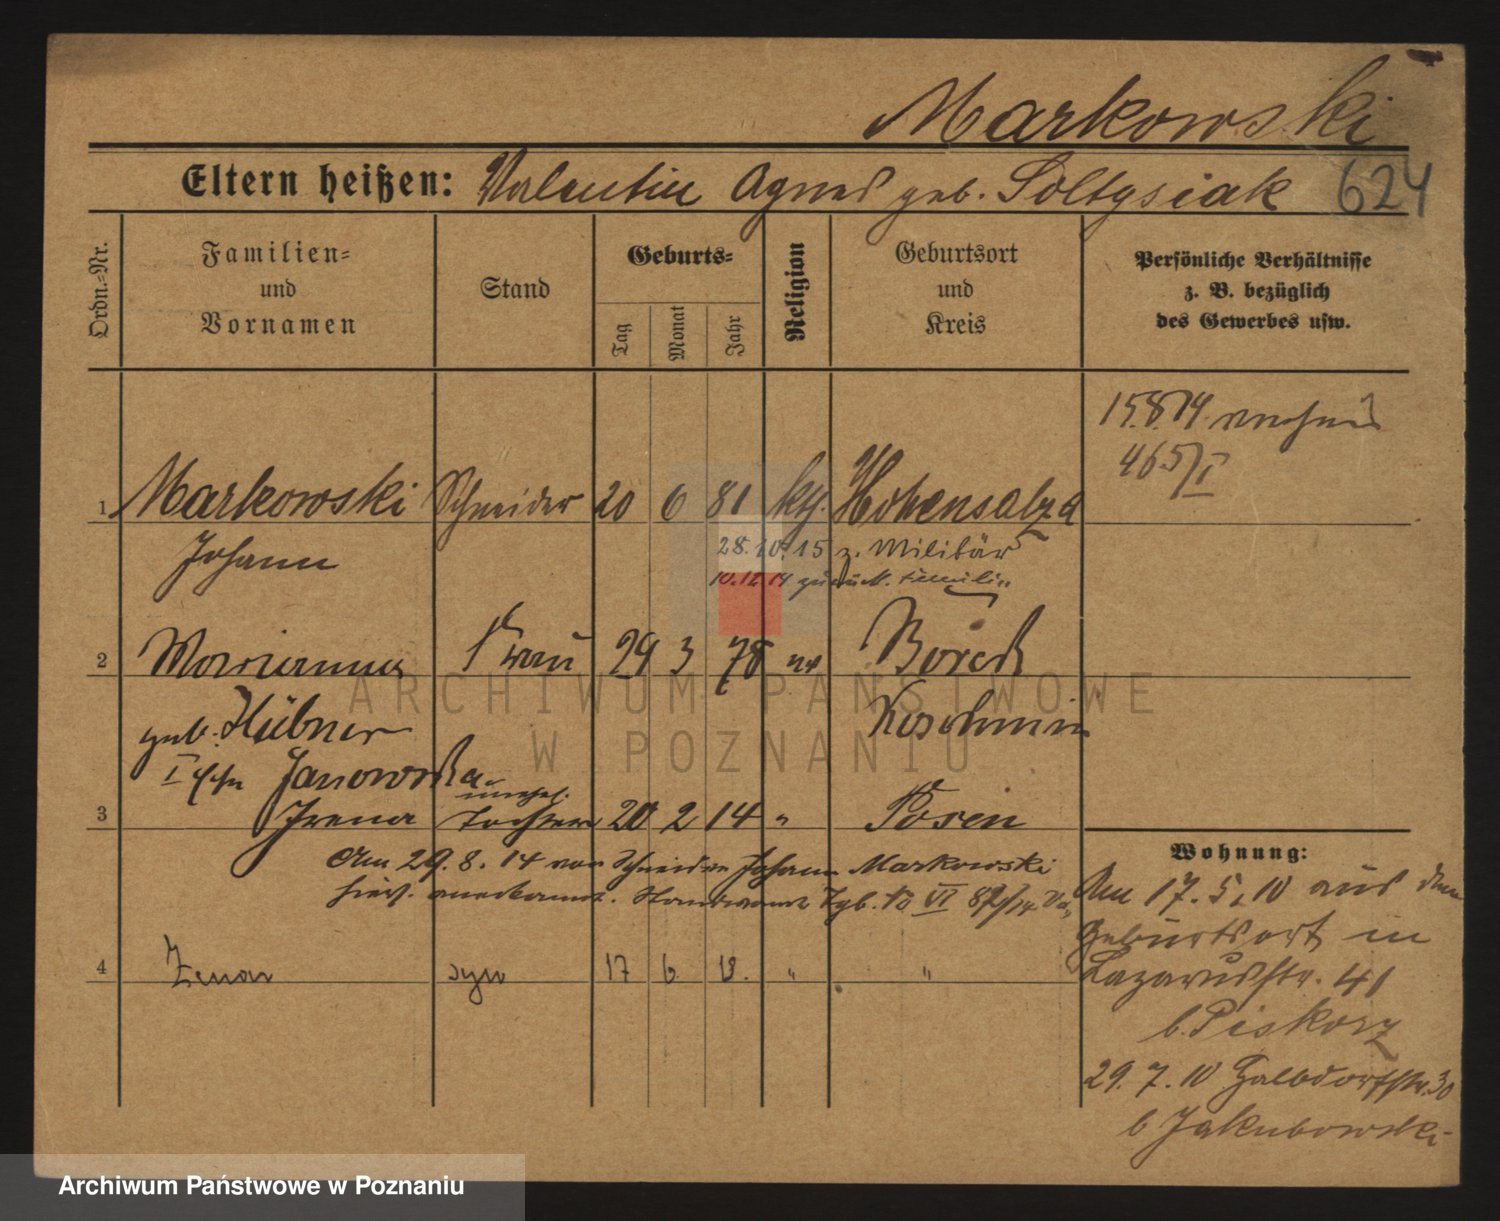 Markowski
Eltern heißen: Valentin Agnes geb. Soltysiak 624
Ordn.-Nr.
Familien-
und
Vornamen
Stand
Geburts-
Tag
Monat
Jahr
Religion
Geburtsort
und
Kreis
Persönliche Verhältnisse
z. B. bezüglich
des Gewerbes usw.
15.8.14
465/I
1 Markowski Schneider 20 6 81 kth. Hohensalza
Johann
28.10.15 z. Militär
10.12.14 zurück. Familie
2 Marianna Frau 29 3 78 Borek
geb. Hübner Koschmin
I Janowska
unehel.
3 Irena Tochter 20 2 14 " Posen
Am 29. 8. 14 von Schneider Johann Markowski
hiers. anerkannt. Standesamt Tgb. No VI
4 Zenon syn 17 6 " "
Wohnung:
Am 17. 5. 10 aus dem
Geburtsort in
Lazarusstr. 41
b. Piskorz
29. 7. 10 30
b Jakubowski
ARCHIWUM PAŃSTWOWE
W POZNANIU
Archiwum Państwowe w Poznaniu